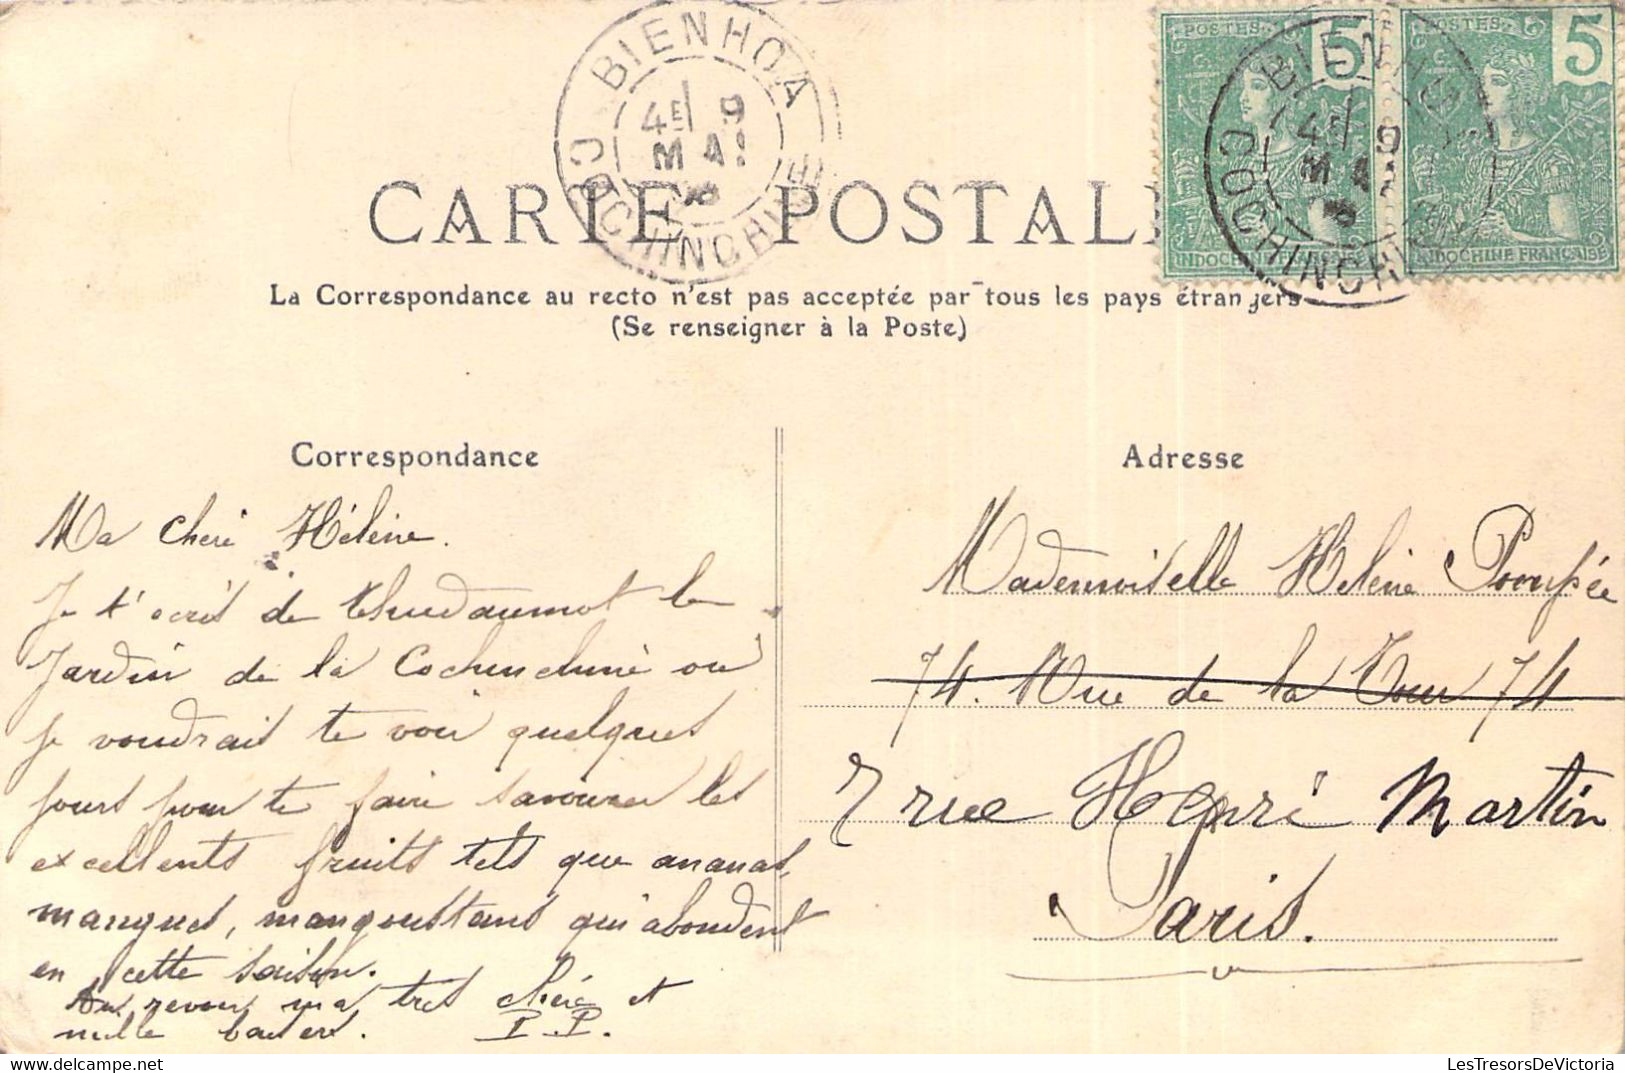 BIENHOA
4E 9
MAI
08
COCHINCHINE
POSTES 5
INDOCHINE FRANÇAISE
POSTES 5
INDOCHINE FRANÇAISE
BIENHOA
4E 9
MAI
COCHINCHINE
CARTE POSTALE
La Correspondance au recto n'est pas acceptée par tous les pays étrangers
(Se renseigner à la Poste)
Correspondance
Ma chère Hélène.
Je t'ecris de Thudaumot le
Jardin de la Cochinchine où
je voudrait te voir quelques
jours pour te faire savourer les
excellents fruits tels que ananas,
mangues, mangoustans qui abondent
en cette saison.
Au revoir ma tres chère et
mille baisers. P. P.
Adresse
Mademoiselle Hélène Pompée
74. Rue de la Tour 74
7 rue Henri Martin
Paris.
LesTresorsDeVictoria